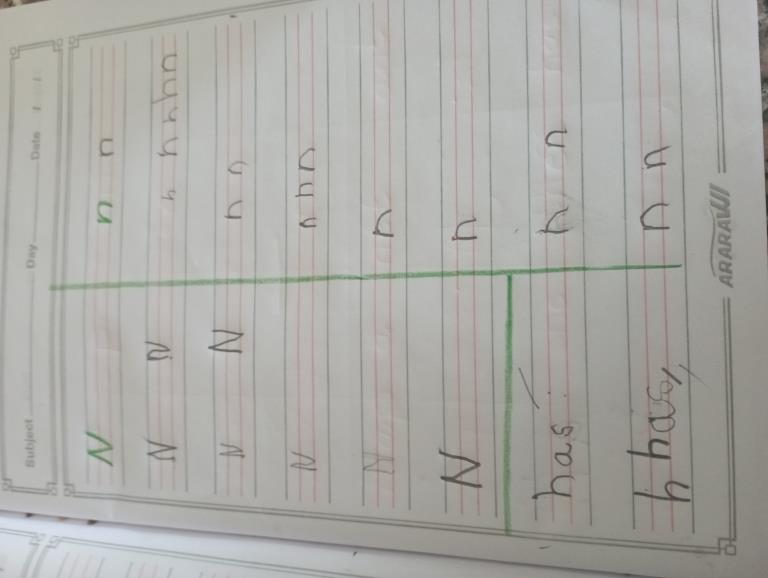 Subject Day Date / /
N n n
N N n n n n n
N N n n
N n n n
N n
N n
has h n
h has n n
ARARAWI